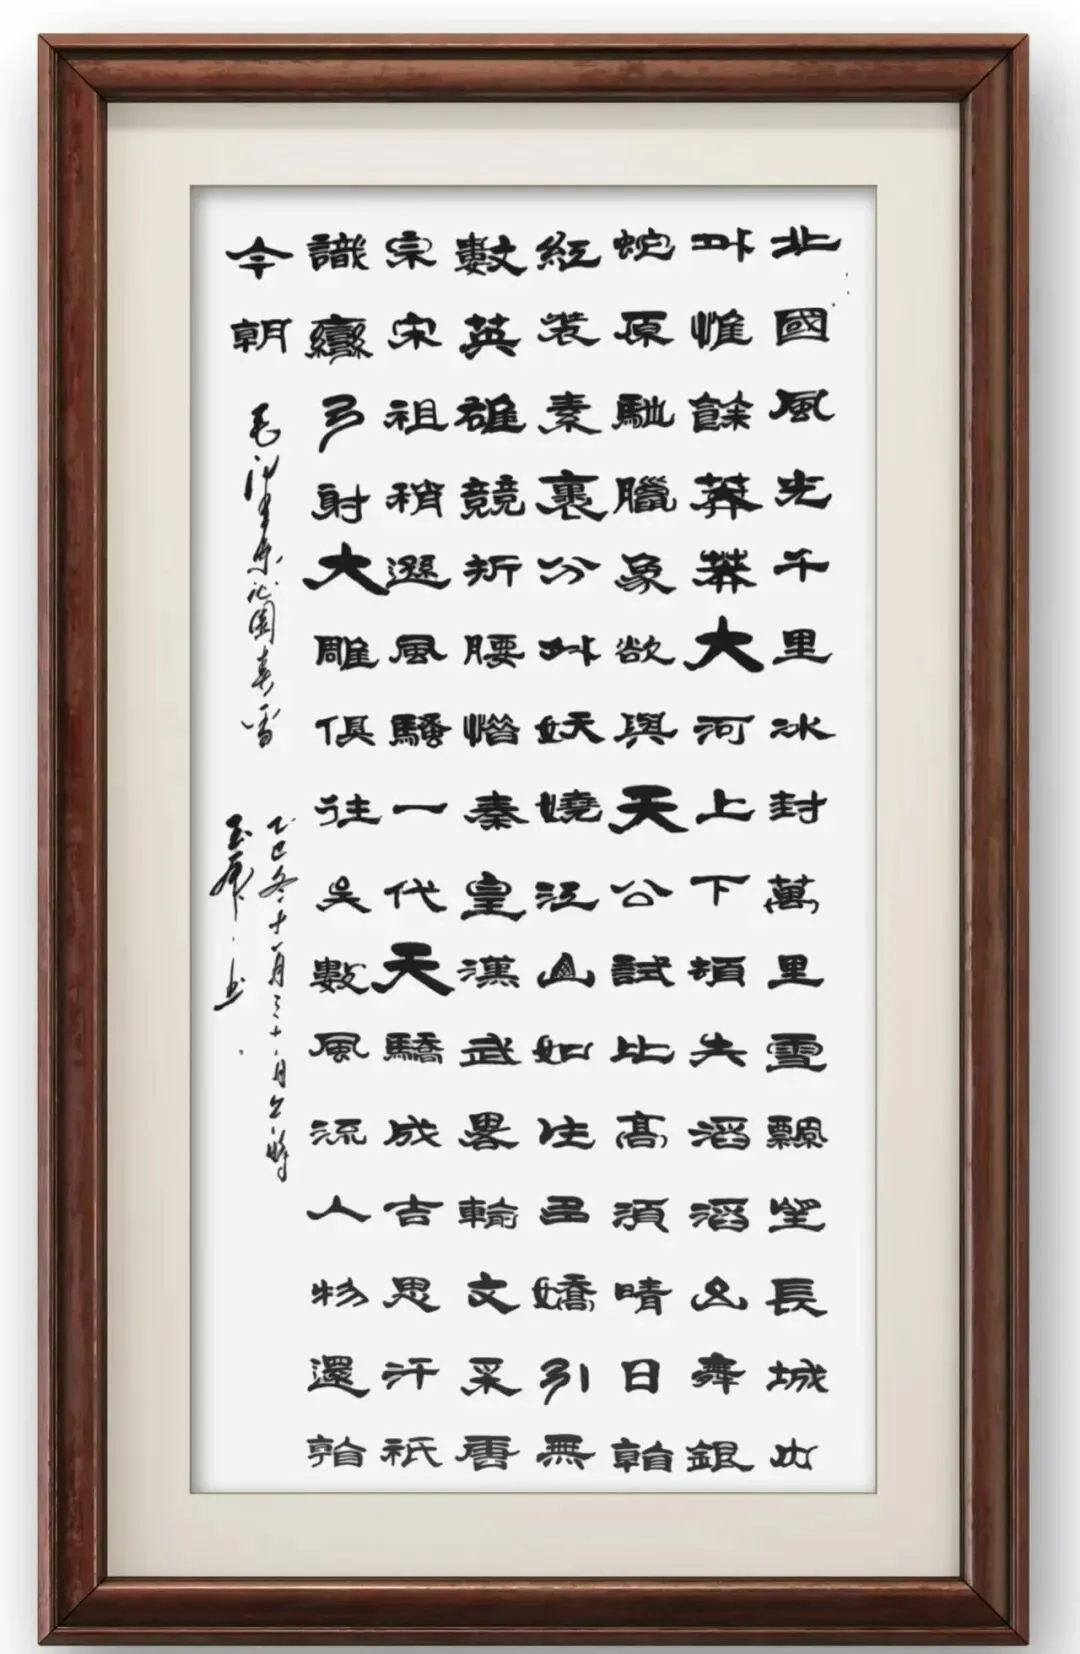 北國風光千里冰封萬里雪飄望長城内
外惟餘莽莽大河上下頓失滔滔山舞銀
蛇原馳臘象欲與天公試比高須晴日看
紅裝素裹分外妖嬈江山如此多嬌引無
數英雄競折腰惜秦皇漢武畧輸文采唐
宗宋祖稍遜風騷一代天驕成吉思汗祇
識彎弓射大雕俱往矣數風流人物還看
今朝
毛泽东沁園春雪
乙巳冬十一月三十
玉